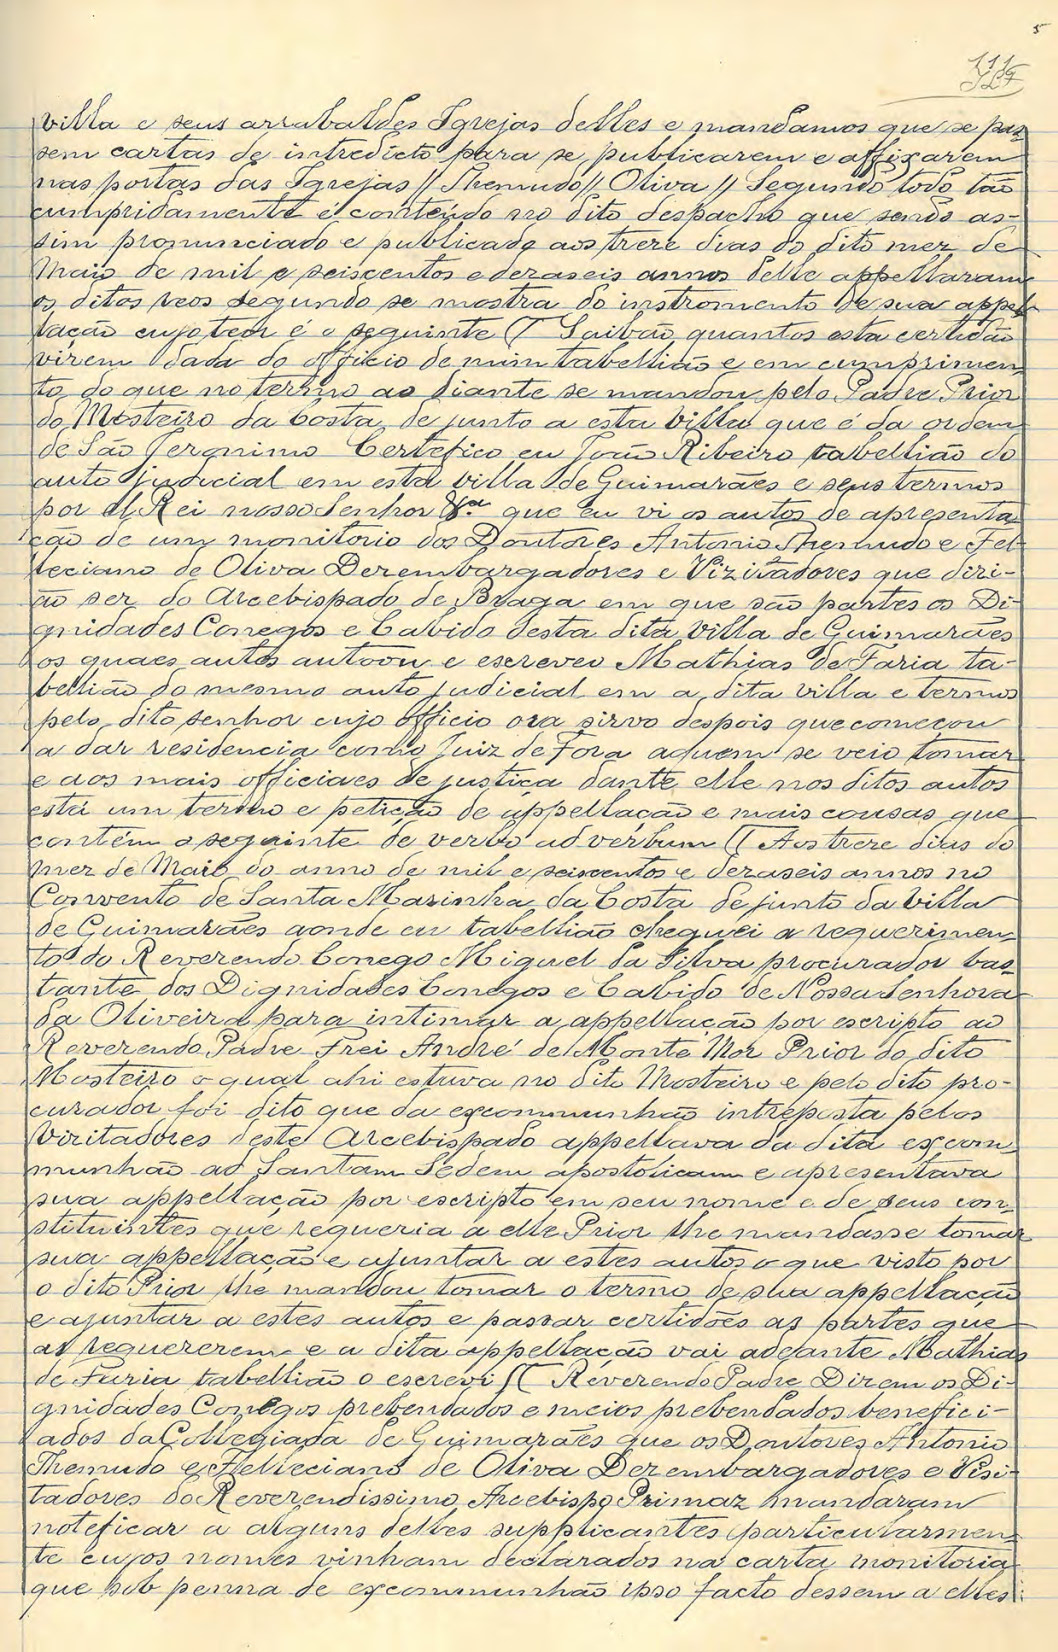 5
villa e seus arrabaldes Igrejas delles e mandamos que se pas-
sem cartas de intredicto para se publicarem e affixarem
nas portas das Igrejas // Themudo // Oliva // Segundo todo tão
cumpridamente é contéudo no dito despacho que sendo as-
sim pronunciado e publicado aos treze dias do dito mez de
Maio de mil e seiscentos e dezaseis annos delle appellaram
os ditos reos segundo se mostra do instromento de sua appel-
lação cujo teor é o seguinte (( Saibão quantos esta certidão
virem dada do officio de mim tabellião e em cumprimen-
to do que no termo ao diante se mandou pelo Padre Prior
do Mosteiro da Costa, de junto a esta villa que é da ordem
de São Jeronimo Certefico eu João Ribeiro tabellião do
auto judicial em esta villa de Guimarães e seus termos
por el Rei nosso Senhor que eu vi os autos de apresenta-
ção de um monitorio dos Doutores Antonio Themudo e Fel-
leciano de Oliva Dezembargadores e Vizitadores que diri-
ão ser do Arcebispado de Braga em que são partes os Di-
gnidades Conegos e Cabido desta dita Villa de Guimarães
os quaes autos autoou e escreveo Mathias de Faria ta-
bellião do mesmo auto judicial em a dita villa e termos
pelo dito senhor cujo officio ora sirvo despois que começou
a dar residencia como Juiz de Fora aquem se veio tomar
e aos mais officiaes de justiça dante elle nos ditos autos
está um termo e petição de appellação e mais cousas que
contém o seguinte de verbo ad verbum (( Aos treze dias do
mez de Maio do anno de mil e seiscentos e dezaseis annos no
Convento de Santa Marinha da Costa de junto da Villa
de Guimarães aonde eu tabellião cheguei a requerimen-
to do Reverendo Conego Miguel da Silva procurador bas-
tante dos Dignidades Conegos e Cabido de Nossa Senhora
da Oliveira para intimar a appellação por escripto ao
Reverendo Padre Frei André de Monte Mor Prior do dito
Mosteiro o qual ahi estava no dito Mosteiro e pelo dito pro-
curador foi dito que da excommunhão intreposta pelos
Vizitadores deste Arcebispado appellava da dita excom-
munhão ad Santam Sedem apostolicam e apresentava
sua appellação por escripto em seu nome e de seus con-
stituintes que requeria a elle Prior lhe mandasse tomar
sua appellação e ajuntar a estes autos o que visto por
o dito Prior lhe mandou tomar o termo de sua appellação
e ajuntar a estes autos e passar certidões as partes que
as requererem e a dita appellação vai adeante Mathias
de Faria tabellião o escrevi (( Reverendo Padre Dizem os Di-
gnidades Conegos prebendados e meios prebendados benefici-
ados da Collegiada de Guimarães que os Doutores Antonio
Themudo e Felleciano de Oliva Dezembargadores e Visi-
tadores do Reverendissimo Arcebispo Primaz mandaram
noteficar a alguns delles supplicantes particularmen-
te cujos nomes vinham declarados na carta monitoria
que sob penna de excommunhão ipso facto dessem a elles